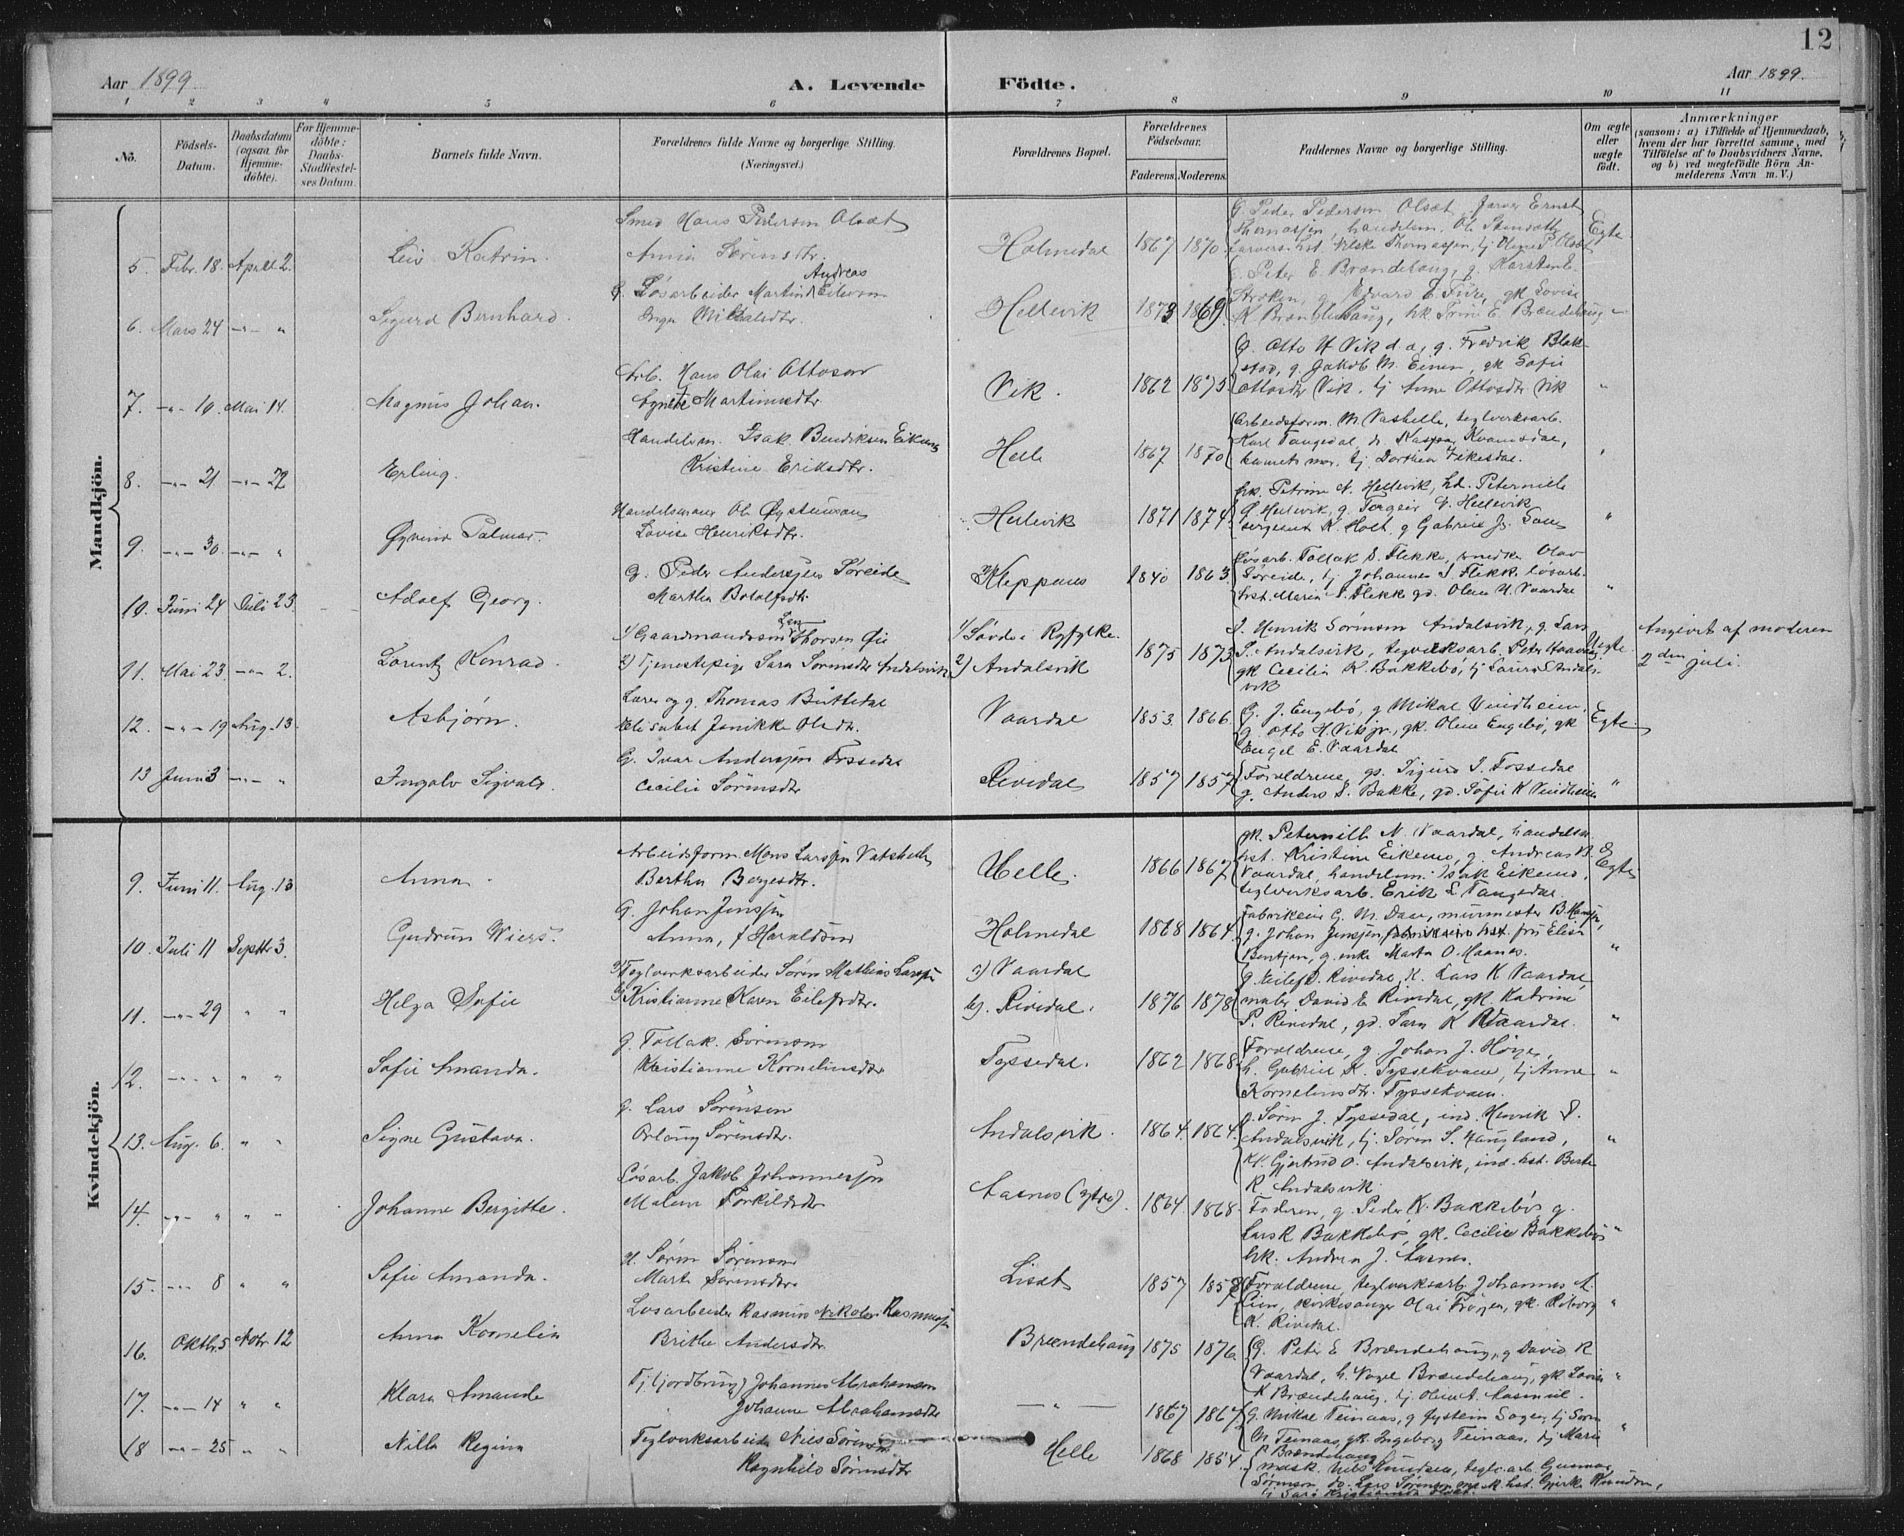 12
Aar 1899.
A. Levende Födte.
Aar 1899.
1 2 3 4 5 6 7 8 9 10 11
No.
Födsels-
Datum.
Daabsdatum
(ogsaa for
Hjemme-
döbte).
For Hjemme-
döbte:
Daabs-
Stadfæstel-
ses Datum.
Barnets fulde Navn.
Forældrenes fulde Navne og borgerlige Stilling.
(Næringsvei.)
Forældrenes Bopæl.
Forældrenes
Födselsaar.
Faderens. Moderens.
Faddernes Navne og borgerlige Stilling.
Om ægte
eller
uægte
födt.
Anmærkninger
(saasom: a) i Tilfælde af Hjemmedaab,
hvem der har forrettet samme, med
Tilföielse af to Daabsvidners Navne,
og b) ved uegtefödte Börn An-
melderens Navn m. V.)
Mandkjön.
5. Febr. 18. April 2. Leiv Katrin.
Smed Hans Pedersen Olset
Anna Sörensdtr.
Holmedal 1867 1870
G. Peder Pedersen Olset, farver Ernst
Thomassen, handelsm. Ol.
Egte
6. Mars 24 -"- " Sigurd Bernhard.
G. Lösarbeider Martin Andreas Eilevsen
Inga Mikalsdtr.
Hellevik 1873 1869
G. Peter E. Brændehaug, g. Karsten E.
K. Brændehaug, hk. Trine E. Brændehaug
7. -"- 10. Mai 14. Magnus Johan.
Arb. Hans Olai Ottosen
Agnete Martinusdtr.
Vik. 1862 1875
G. Otto H. Vik d.a., g. Fredrik Blak-
stad, g. Jakob M. Einen, gk Sofie
Ottosdtr Vik, tj Anne Ottosdtr Vik
"
8. -"- 21 -"- 22 Erling.
Handelsm. Isak Bendiksen Eikemo
Kristine Eriksdtr.
Helle 1867 1870
Arbeidsform. M. Vashelle, teglverksarb.
Karl Tangedal, Kaspar Kvamsdal,
barnets mor, tj Dorthea
9. -"- 30. -"- " Øyvind Palmar.
Handelsmand Ole Øystensen
Lovise Henriksdtr.
Hellevik 1871 1874
hk. Petrine N. Hellevik, hd. Peternille
Ø. Hellevik, g. Torgeir V. Hellevik
sergeant K. Holt, g Gabriel Js.
"
10. Juni 24 Juli 23. Adolf Georg.
G. Peder Andersen Söreide
Martha Botolfsdtr.
Kleppenes 1840 1863
Lösarb. Tollak S. Flekke, snedker Olav
Söreide, tj Johannes S. Flekke, lösarb.
hst. Maria S. Flekke gd. Oline H. Vaardal
"
11. Mai 23. -"- 2. Lorentz Konrad.
1) Gaardmandssön Thorsen Øie
2) Tjenestepige Sara Sörensdtr Andalsvik
1) Søvde Ryfylke.
2) Andalsvik
1875 1873
I. Henrik Sörensen Andalsvik, g. Lars
S. Andalsvik, teglverksarb. Peter
gk Cecilia K. Bakkebö, tj Laura S Andals-
vik
Uegte.
Angivet af moderen
2den juli.
12. -"- 19 Aug. 13. Asbjörn.
Lærer og g. Thomas Buttedal
Elisabet Janikke Olsdtr.
Vaardal 1853 1866
G. J. Engebö, g Mikal Vindheim,
g. Otto H. Vik jr., gk. Olina Engebö, gk
Engel E. Vaardal
Egte.
13 Juni 3 -"- " Ingolv Sigvald.
G. Ivar Andersen Fossedal
Cecilie Sörensdtr
Rivedal 1857 1857
Forældrene, gs. Sigurd I. Fossedal
g. Anders S. Bakke, gd. Sofie K Vindheim
"
Kvindekjön.
9. Juni 11. Aug. 13 Anna.
Arbeidsform. Mons Larsen Vatshelle
Bertha Børgesdtr.
Helle. 1866 1867
gk. Peternille N. Vaardal, handelsm.
hst. Kristine Eikemo, g. Andreas B.
Vaardal, handelsm. Isak Eikemo,
teglverksarb. Erik L Tangedal.
Egte
10. Juli 11 Septbr 3. Gudrun Wiers.
G. Johan Jensen
Anna, f Haraldsen
Holmedal 1868 1864
Fabrikeier G. M. Dase, murmester B. Hansen,
g. Johan Jensen, fru Elise
Bentsen, g. enke Marta O. Haanes.
"
11. -"- 29 " " Helga Sofie
a) Teglverksarbeider Sören Mathias Larsen
b) Kristianne Karen Eilefsdtr.
a) Vaardal
b). Rivedal.
1876 1878
G. Eilef D. Rivedal, K. Lars K Vaardal,
maler David E. Rivedal, gk. Katrine
P. Rivedal, gd. Sara K Vaardal.
"
12. -"- " " " Sofie Amanda.
G. Tollak Sörensen
Kristianne Kornelinsdtr
Tyssedal. 1862 1868
Forældrene, g Johan J. Höyer,
h. Gabriel K. Tyssekvam, tj Anne
Kornelinsdtr. Tyssekvam.
"
13. Aug. 6. " " Signe Gustava.
G. Lars Sörensen
Orlaug Sörensdtr.
Andalsvik. 1864. 1864.
g. Sören J. Tyssedal, ind. Henrik S.
Andalsvik, tj. Sören S. Haugland,
Kk. Gjertrud O. Andalsvik, ind. hst. Berte
K. Andalsvik.
"
14. -"- " " " Johanne Bergitte.
Lösarb. Jakob Johannessen
Malene Torkildsdtr
Aasnes (ytre). 1864 1868
Faderen, g. Peder K. Bakkebö, g.
Lars K Bakkebö, gk. Cecilie Bakkebö
hk. Andrea J. Aasnes.
"
15. -"- 8 " " Sofie Amanda.
H. Sören Sörensen
Marta Sörensdtr
Liset 1857 1858
Forældrene, teglverksarb. Johannes A.
Lien, kirkesanger Olai gk. Röborg
K. Rivedal.
"
16. Oktbr. 5 Novbr 12 Anna Kornelia
Lösarbeider Rasmus Nikolai Rasmussen
Brithe Andersdtr.
Brændehaug 1875 1876
G. Peter E Brændehaug, g David R
Vaardal, h. Vogel Brændehaug, gk. Lovise
K Brændehaug, tj Oline A. Aasmul.
"
17. -"- 14 " " Klara Amanda
Johannes Abrahamsen
Johanne Abrahamsdtr
— " — 1867 1867
G. Mikal Teinaas, g Øystein tj Sören
M. Teinaas, gk. Ingeborg Teinaas, tj Marie
P Brændehaug
"
18 -"- 25 " " Nilla Regina
Teglverksarbeider Nils Sörensen
Ragnhild Sörensdtr
Helle 1868 1854
mask. Nils Knudsen, teglv. arb. Gunnar
Sörensen, do. Lars Sörensen, mask. hst. Gjerke Knudsen,